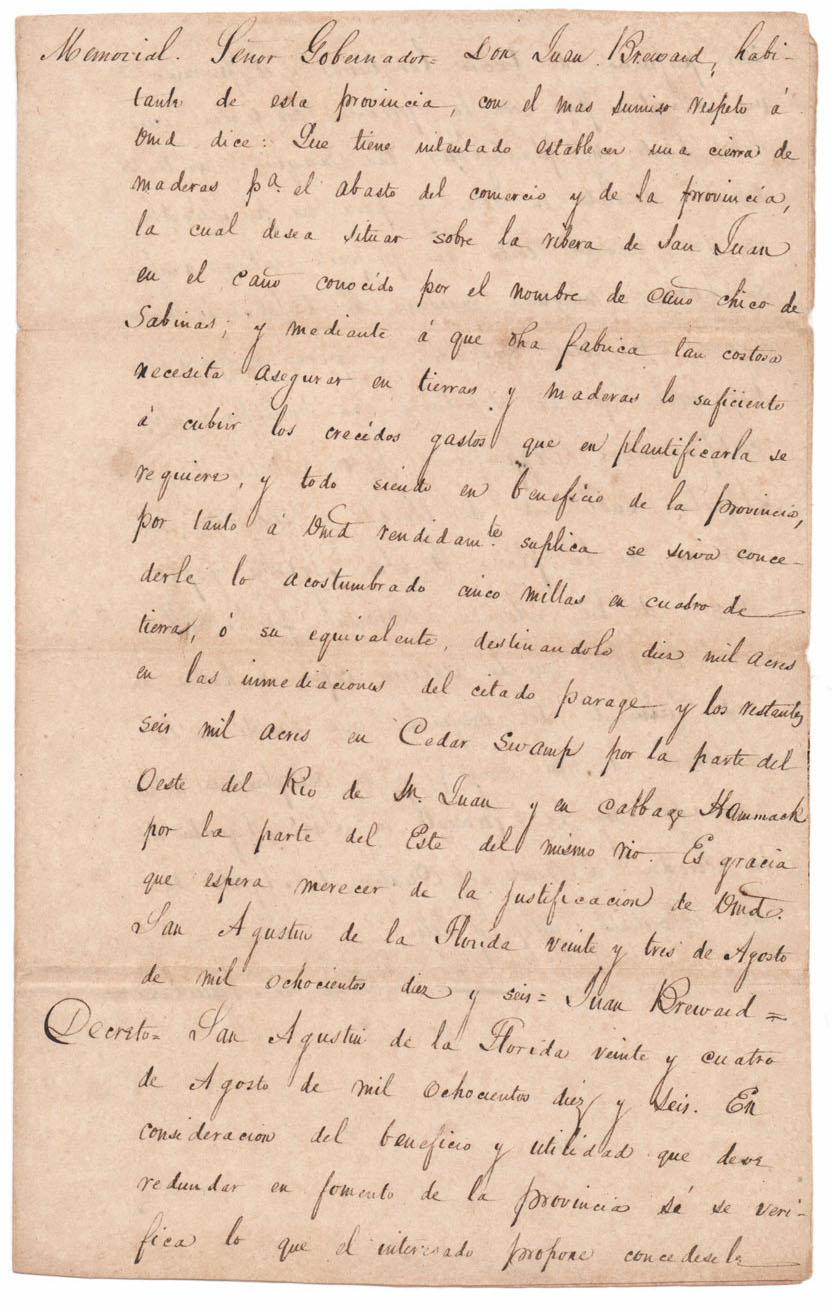 Memorial. Señor Gobernador= Don Juan Breward, habi-
tante de esta provincia, con el mas sumiso respeto á
Vmd dice: Que tiene intentado establecer una cierra de
maderas pa. el abasto del comercio y de la provincia,
la cual desea situar sobre la ribera de San Juan
en el caño conocido por el nombre de caño chico de
Sabinas; y mediante á que dha fabrica tan costosa
necesita asegurar en tierras y maderas lo suficiente
á cubrir los crecidos gastos que en plantificarla se
requiere, y todo siendo en beneficio de la provincia,
por tanto á Vmd rendidamte. suplica se sirva conce-
derle lo acostumbrado cinco millas en cuadro de
tierra, ó su equivalente, destinandole diez mil acres
en las inmediaciones del citado parage y los restantes
seis mil acres en Cedar Swamp por la parte del
Oeste del Rio de Sn. Juan y en Cabbage Hammack
por la parte del Este del mismo rio. Es gracia
que espera merecer de la justificacion de Vmd.
San Agustin de la Florida veinte y tres de Agosto
de mil ochocientos diez y seis= Juan Breward=
Decreto= San Agustin de la Florida veinte y cuatro
de Agosto de mil ochocientos diez y seis. En
consideracion del beneficio y utilidad que deve
redundar en fomento de la provincia sé se veri-
fica lo que el interesado propone concedesele